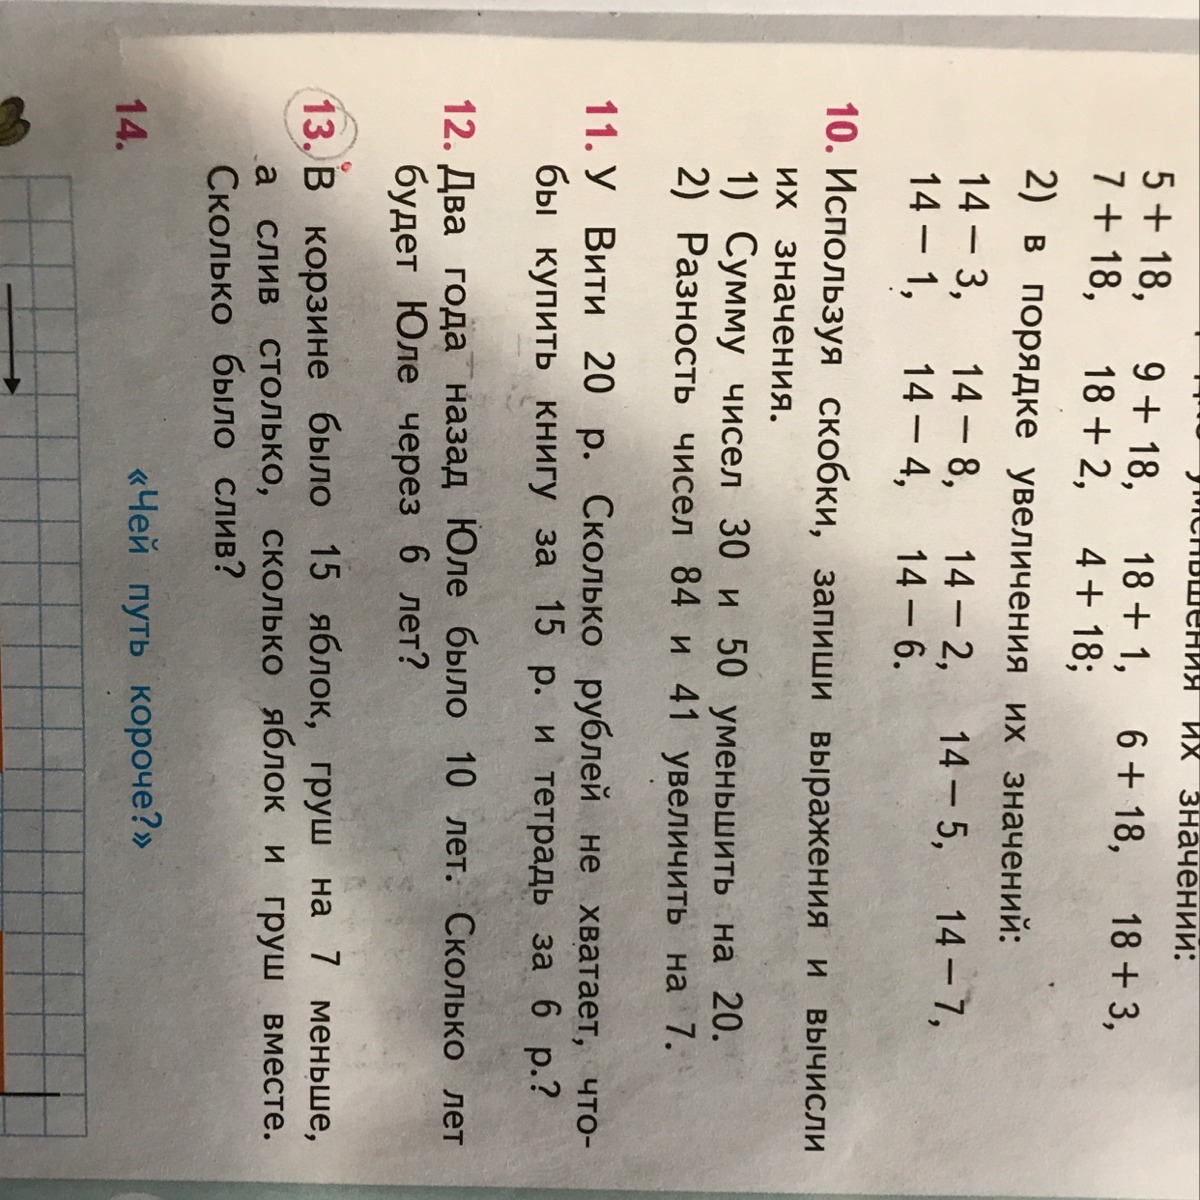 уменьшения их значений:
5 + 18, 9 + 18, 18 + 1, 6 + 18, 18 + 3,
7 + 18, 18 + 2, 4 + 18;
2) в порядке увеличения их значений:
14 − 3, 14 − 8, 14 − 2, 14 − 5, 14 − 7,
14 − 1, 14 − 4, 14 − 6.
10. Используя скобки, запиши выражения и вычисли
их значения.
1) Сумму чисел 30 и 50 уменьшить на 20.
2) Разность чисел 84 и 41 увеличить на 7.
11. У Вити 20 р. Сколько рублей не хватает, что-
бы купить книгу за 15 р. и тетрадь за 6 р.?
12. Два года назад Юле было 10 лет. Сколько лет
будет Юле через 6 лет?
13. В корзине было 15 яблок, груш на 7 меньше,
а слив столько, сколько яблок и груш вместе.
Сколько было слив?
14. «Чей путь короче?»